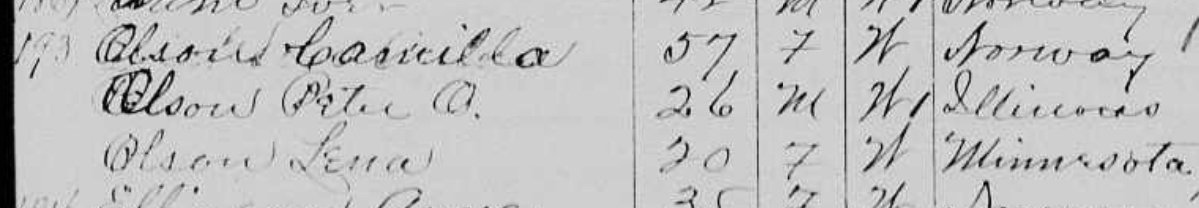 M W Norway
193 Olson Camilla 57 F W Norway
Olson Peter O. 26 M W Illinois
Olson Lena 20 F W Minnesota
35 F W